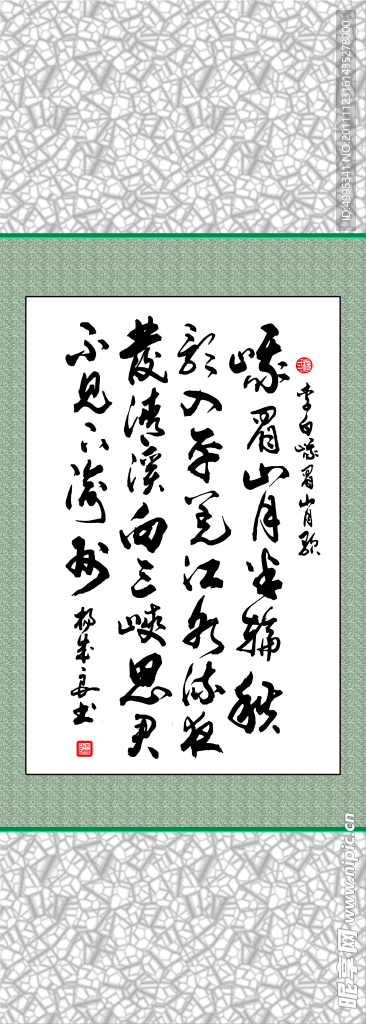 李白峨眉山月歌
峨眉山月半轮秋
影入平羌江水流夜
發清溪向三峡思君
不见下渝州
杨成良书
ID:4995341 NO:20111123161435278000
昵享网 www.nipic.cn